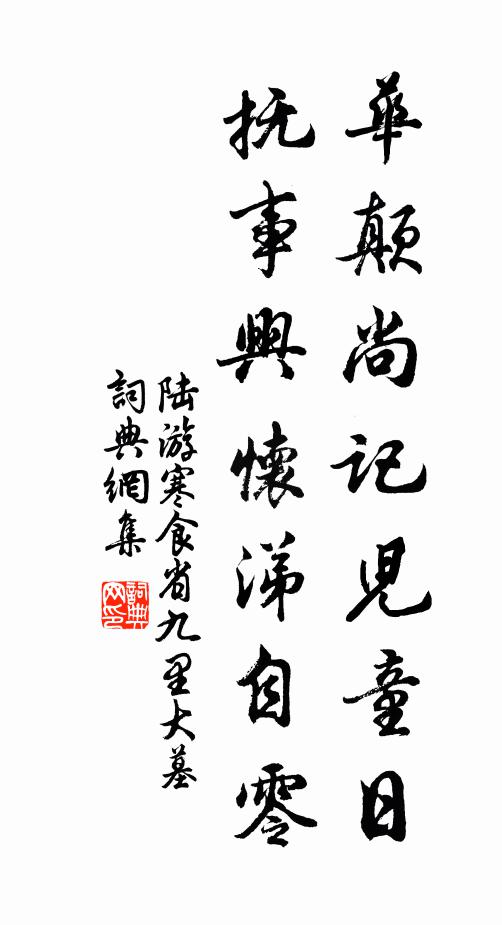 華顛尚記兒童日
抚事興懷涕自零
陆游寒食省九里大墓
詞典網集
詞典網印